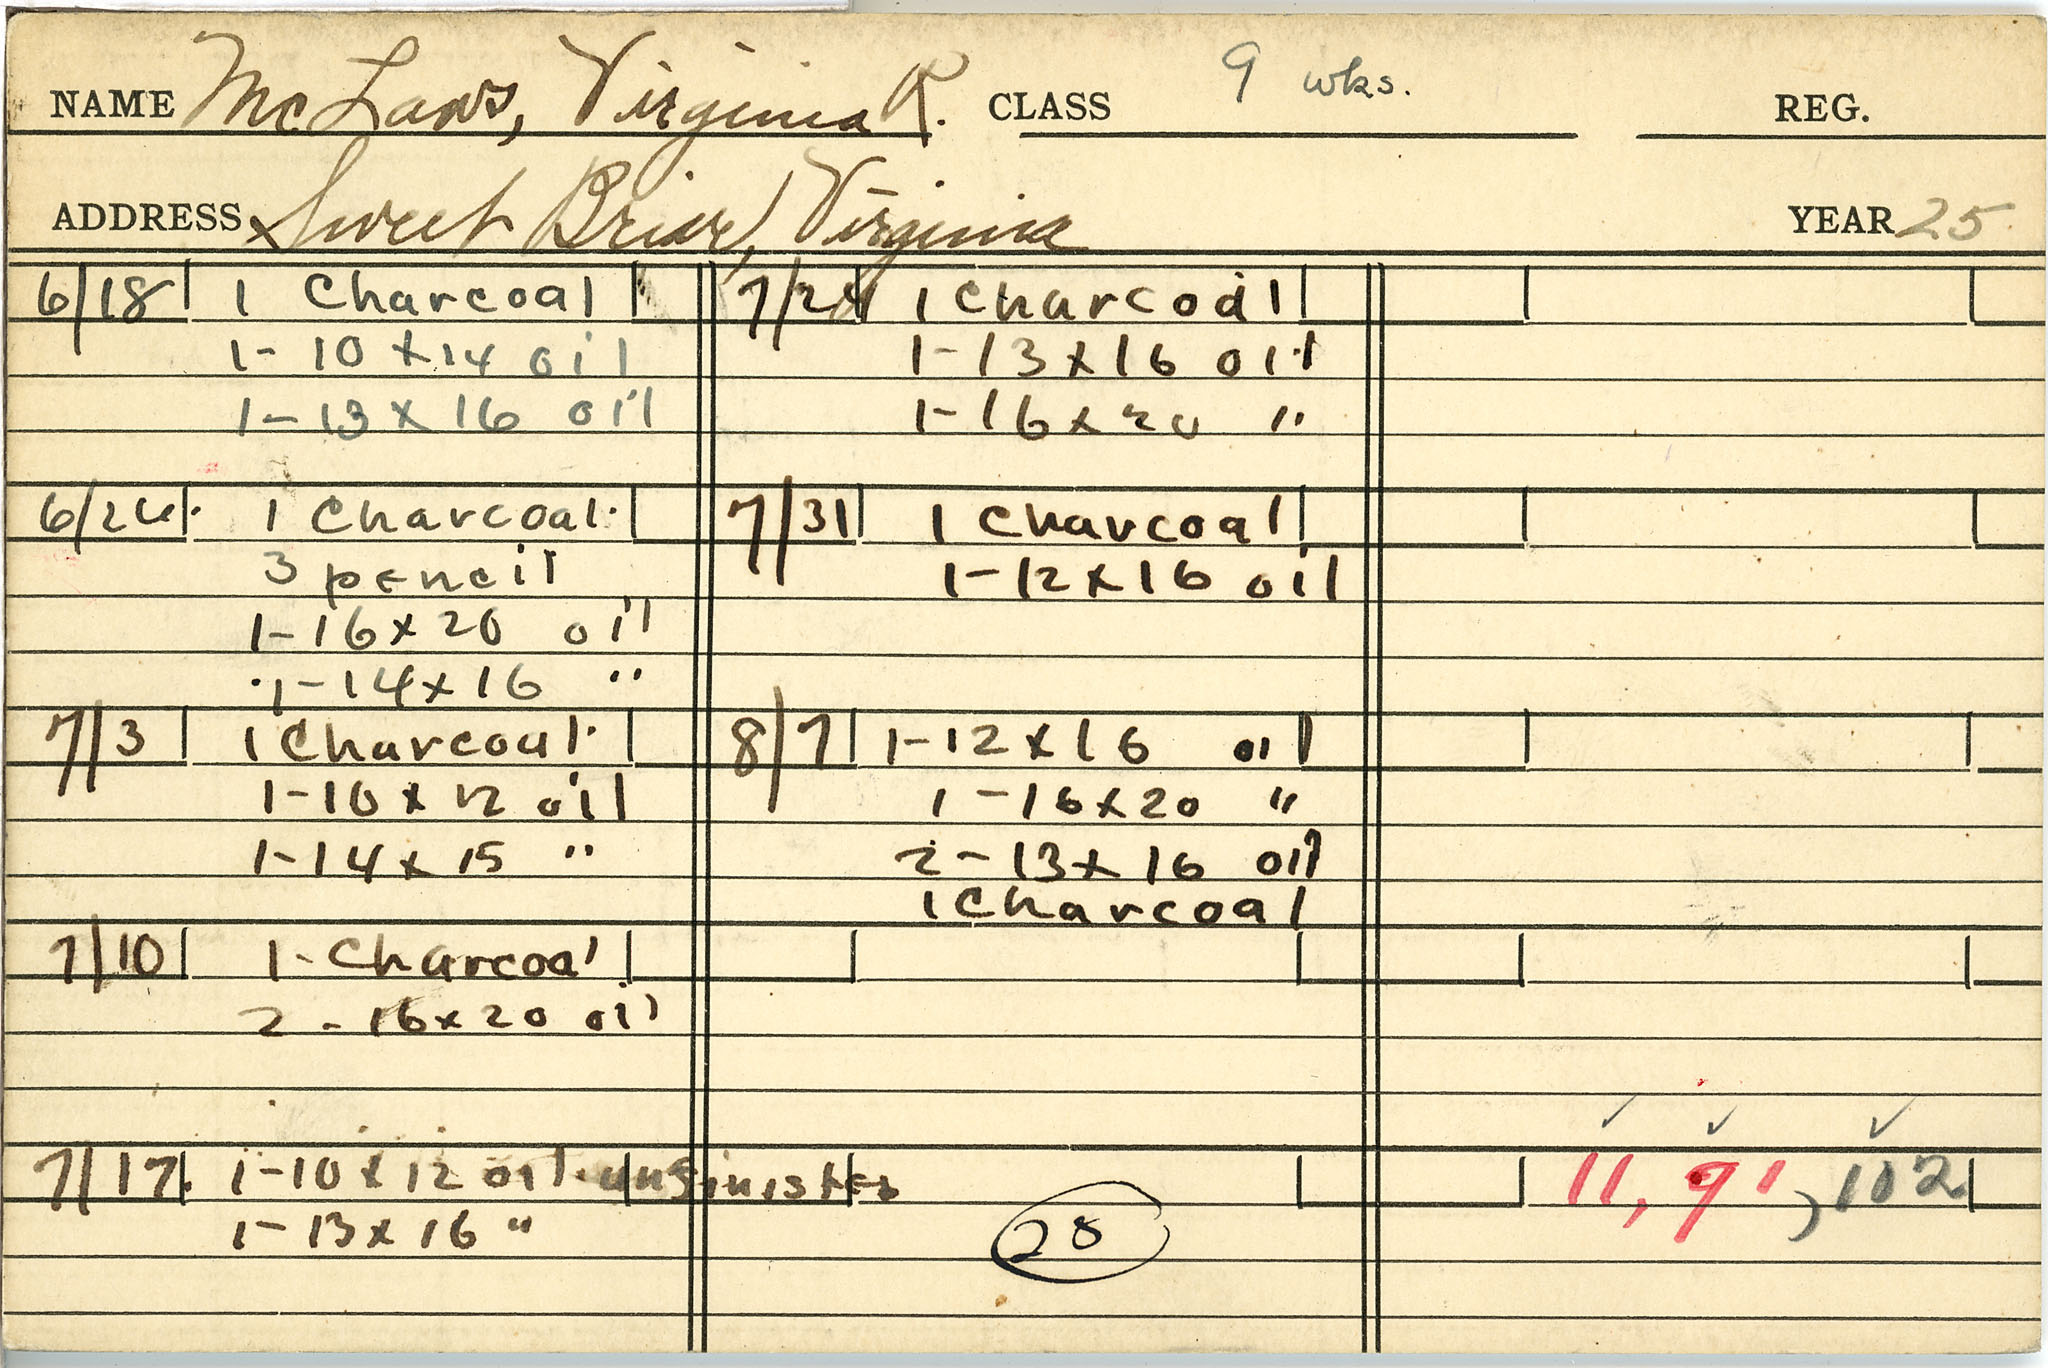 NAME McLaws, Virginia R. CLASS 9 wks. REG.
ADDRESS Sweet Briar, Virginia YEAR 25
6/18 1 Charcoal
1-10x14 oil
1-13x16 oil
6/26. 1 Charcoal.
3 pencil
1-16x20 oil
1-14x16 "
7/3 1 Charcoal.
1-10x12 oil
1-14x15 "
7/10 1-Charcoal
2-16x20 oil
7/17. 1-10x12 oil
1-13x16 "
7/24 1 Charcoal
1-13x16 oil
1-16x20 "
7/31 1 Charcoal
1-12x16 oil
8/7 1-12x16 oil
1-16x20 "
2-13x16 oil
1 Charcoal
28
11, 91, 102